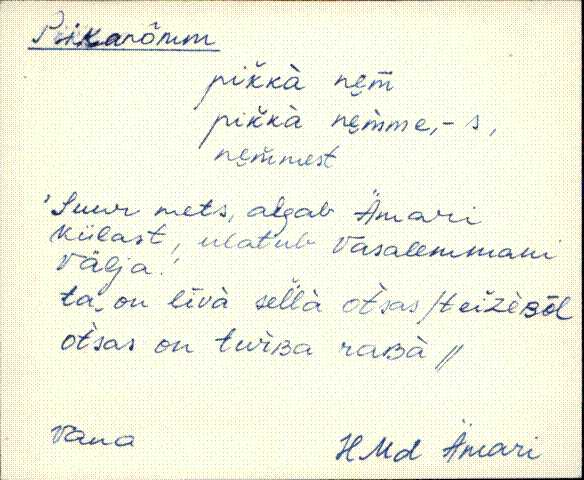 Pikanõmm
pikkà nem̄
pikkà nem̀me, -s,
nem̀mest
'Suur mets, algab Ämari
külast, ulatub Vasalemmani
välja.'
ta on līvà sel̆là otsas / teižèʙòl
otsas on turʙa raʙà //
vana
HMd Ämari